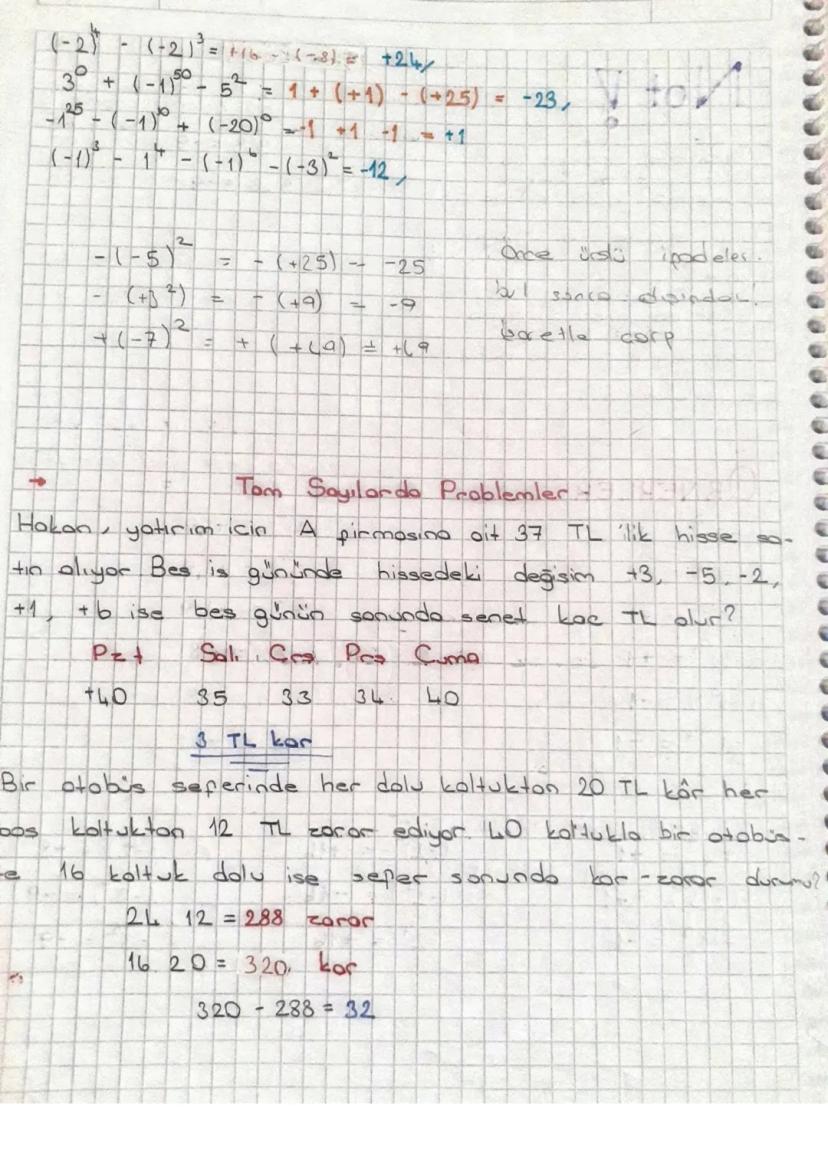 (-2)⁴ - (-2)³ = +16 - (-8) = +24,
3⁰ + (-1)⁵⁰ - 5² = 1 + (+1) - (+25) = -23,
-1²⁵ - (-1)¹⁰ + (-20)⁰ = -1 +1 -1 = +1
(-1)³ - 1⁴ - (-1)⁶ - (-3)² = -12,
-(-5)² = -(+25) = -25 Önce üslü ifadeler.
- (+3²) = - (+9) = -9 sonra
+(-7)² = + (+49) = +49 işaretle çarp
→ Tam Sayılarda Problemler -
Hakan, yatırım için A firmasına ait 37 TL 'lik hisse sa-
tın alıyor Beş iş gününde hissedeki değişim +3, -5, -2,
+1, +6 ise beş günün sonunda senet kaç TL olur?
Pzt Salı Çrş Prş Cuma
+40 35 33 34 40
3 TL kar
Bir otobüs seferinde her dolu koltuktan 20 TL kâr her
boş koltuktan 12 TL zarar ediyor. 40 koltukla bir otobüs-
e 16 koltuk dolu ise sefer sonunda kar-zarar durumu?
24 12 = 288 zarar
16 20 = 320, kar
320 - 288 = 32